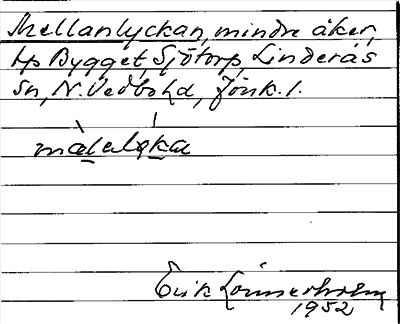 Mellanlyckan, mindre åker,
tp Bygget, Sjötorp, Linderås
sn, N. Vedbo hd, Jönk. l.
màlalỳka
Erik Lönnerholm
1952